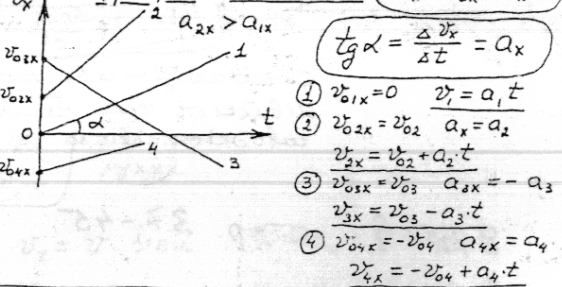 v_x
2
a_2x > a_1x
1
v_03x
v_02x
0
α
t
v_04x
4
3
tg α = Δv_x / Δt = a_x
① v_01x = 0 v_1 = a_1 t
② v_02x = v_02 a_x = a_2
v_2x = v_02 + a_2·t
③ v_03x = v_03 a_3x = - a_3
v_3x = v_03 - a_3·t
④ v_04x = -v_04 a_4x = a_4
v_4x = -v_04 + a_4·t